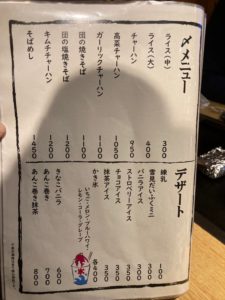 〆メニュー
ライス(中) 300
ライス(大) 400
チャーハン 950
高菜チャーハン 1100
ガーリックチャーハン 1100
団の焼きそば 1100
団の塩焼きそば 1200
キムチチャーハン 1200
そばめし 1450
デザート
練乳 100
雪見だいふくミニ 300
バニラアイス 350
ストロベリーアイス 350
チョコアイス 350
抹茶アイス 350
かき氷 各400
いちご・メロン・ブルーハワイ・
レモン・コーラ・グレープ
きなこバニラ 600
あんこ巻き 700
あんこ巻き抹茶 800